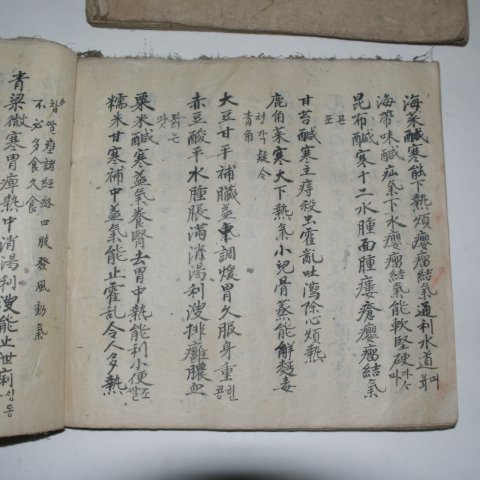 海菜醎寒能下熱煩癭瘤結氣通利水道 며육
海帶味醎疝氣下水癭瘤結氣能軟堅硬
昆布醎寒十二水腫面腫瘻瘡癭瘤結氣
甘苔醎寒主痔殺虫霍亂吐瀉除心煩熱
鹿角菜寒大下熱氣小兒骨蒸能解麵毒
青角
大豆甘平補臟益氣調煖胃久服身重 흰콩
赤豆酸平水腫脹滿消渴利溲排癰膿血
粟米醎寒益氣養腎去胃中熱能利小便 조쌀
糯米甘寒補中益氣能止霍乱令人多熱
찹쌀 壅諸經絡四肢發風動氣
不必多食久食
青粱微寒胃痺熱中消渴利溲能止世痢